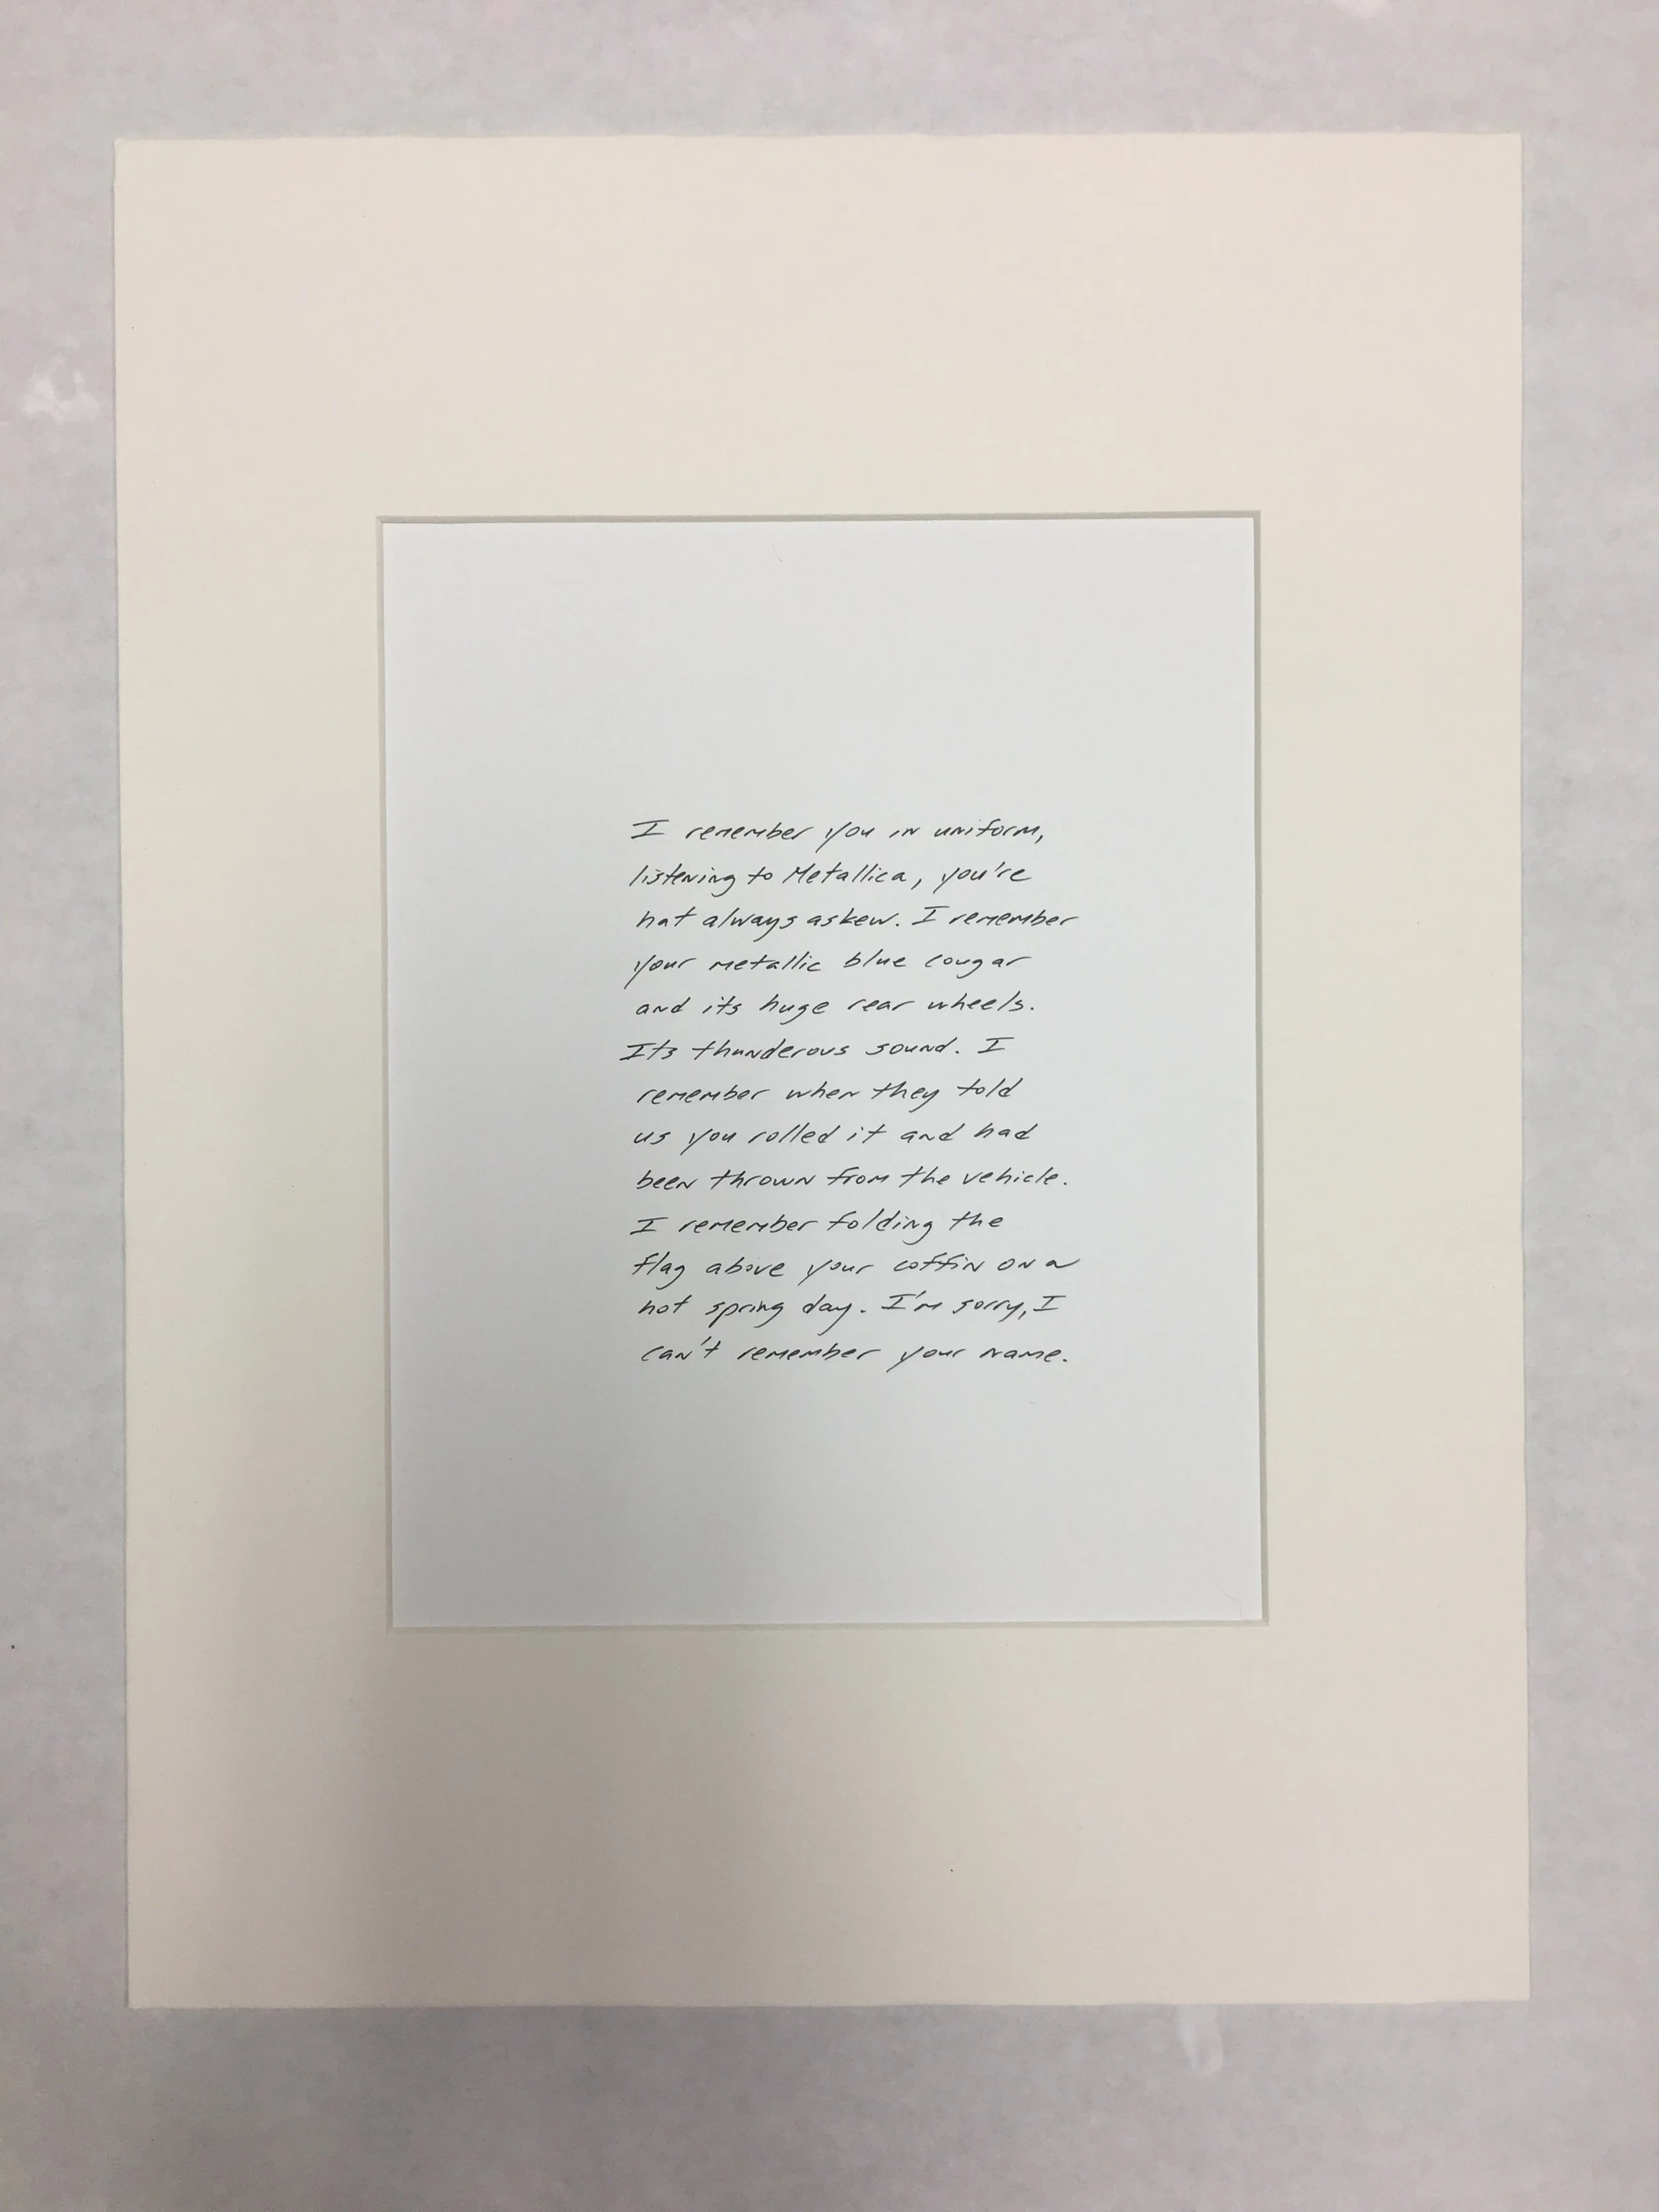 I remember you in uniform,
listening to Metallica, you're
hat always askew. I remember
your metallic blue cougar
and its huge rear wheels.
Its thunderous sound. I
remember when they told
us you rolled it and had
been thrown from the vehicle.
I remember folding the
flag above your coffin on a
hot spring day. I'm sorry, I
can't remember your name.